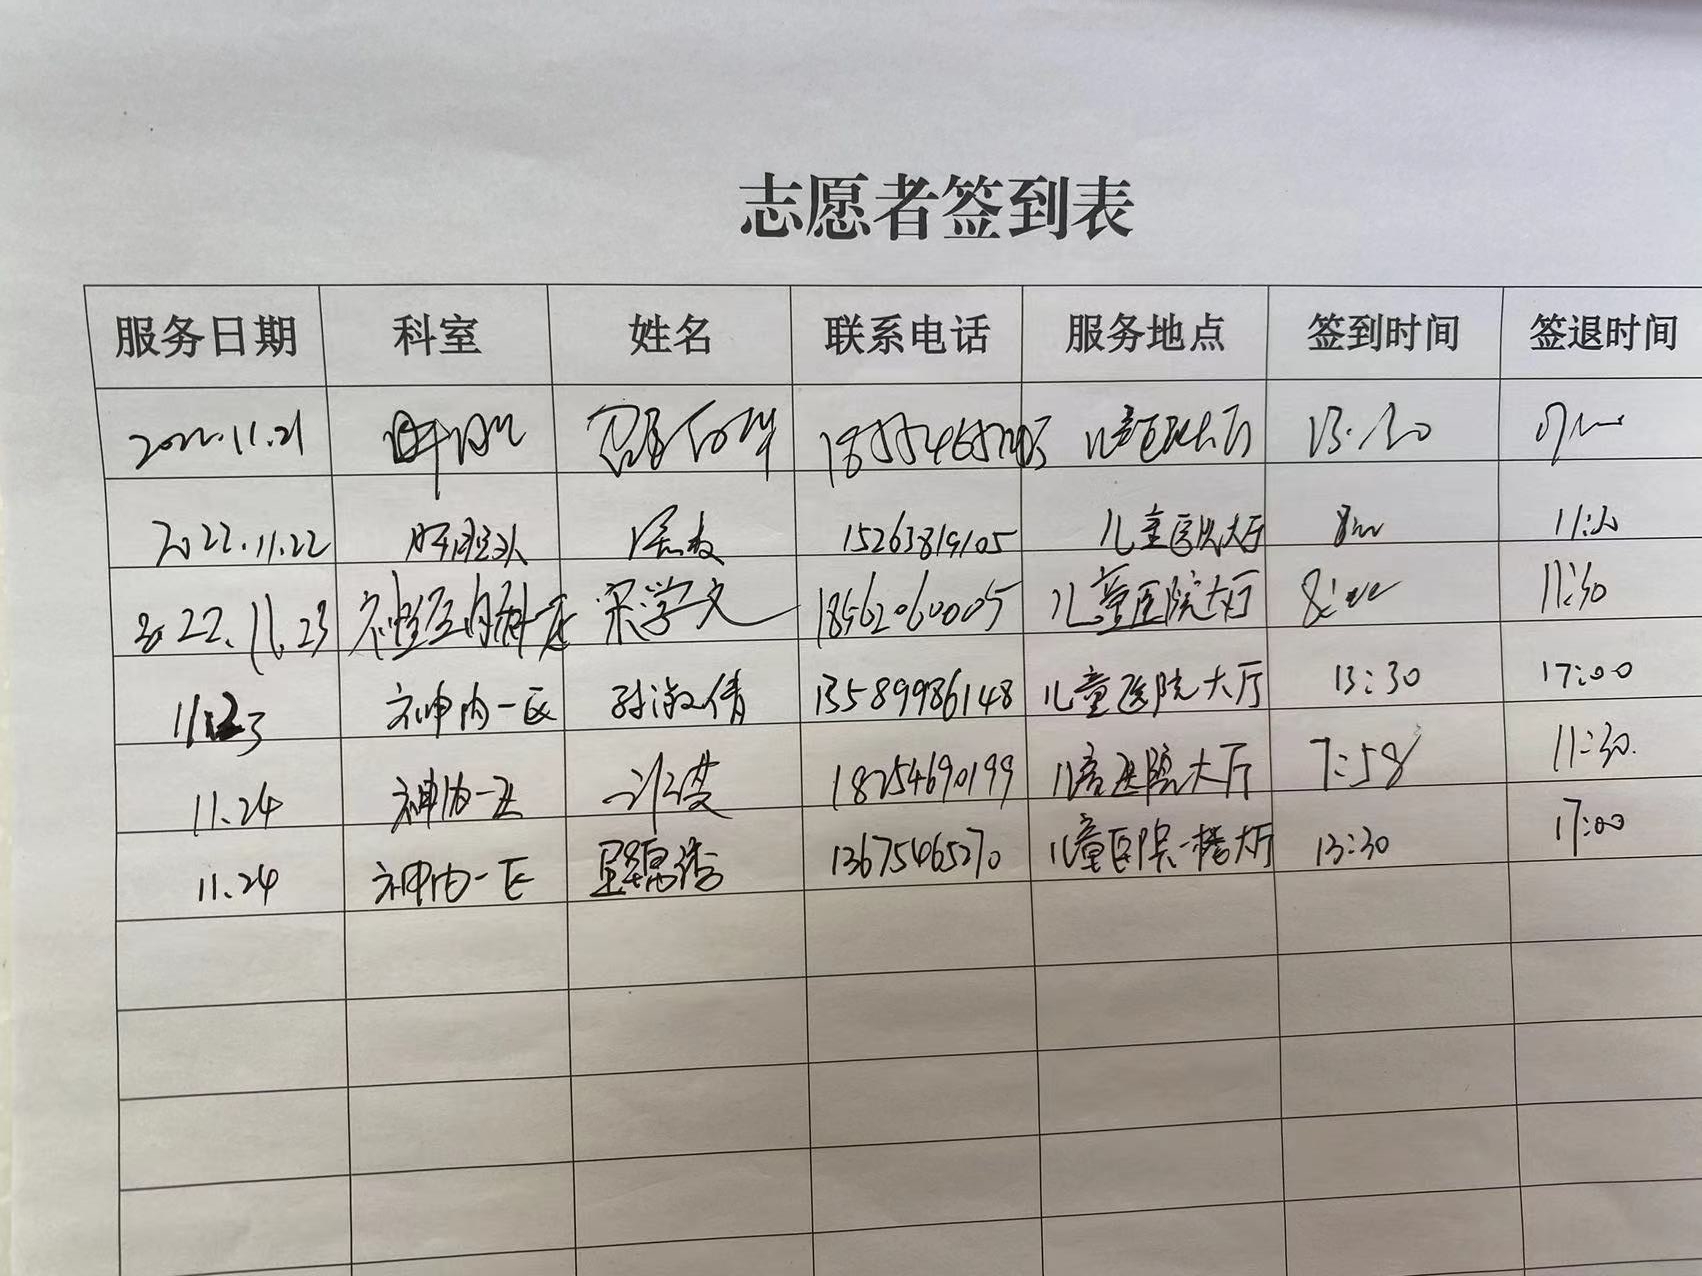 志愿者签到表
服务日期 科室 姓名 联系电话 服务地点 签到时间 签退时间
2022.11.21 儿童医院大厅 13:30
2022.11.22 15263819105 儿童医院大厅 11:30
2022.11.23 神经内科一区 宋学文 18562060005 儿童医院大厅 8:00 11:30
11.23 神内一区 孙淑倩 13589986148 儿童医院大厅 13:30 17:00
11.24 神内一区 18254690199 儿童医院大厅 7:58 11:30
11.24 神内一区 13675465270 儿童医院一楼大厅 13:30 17:00